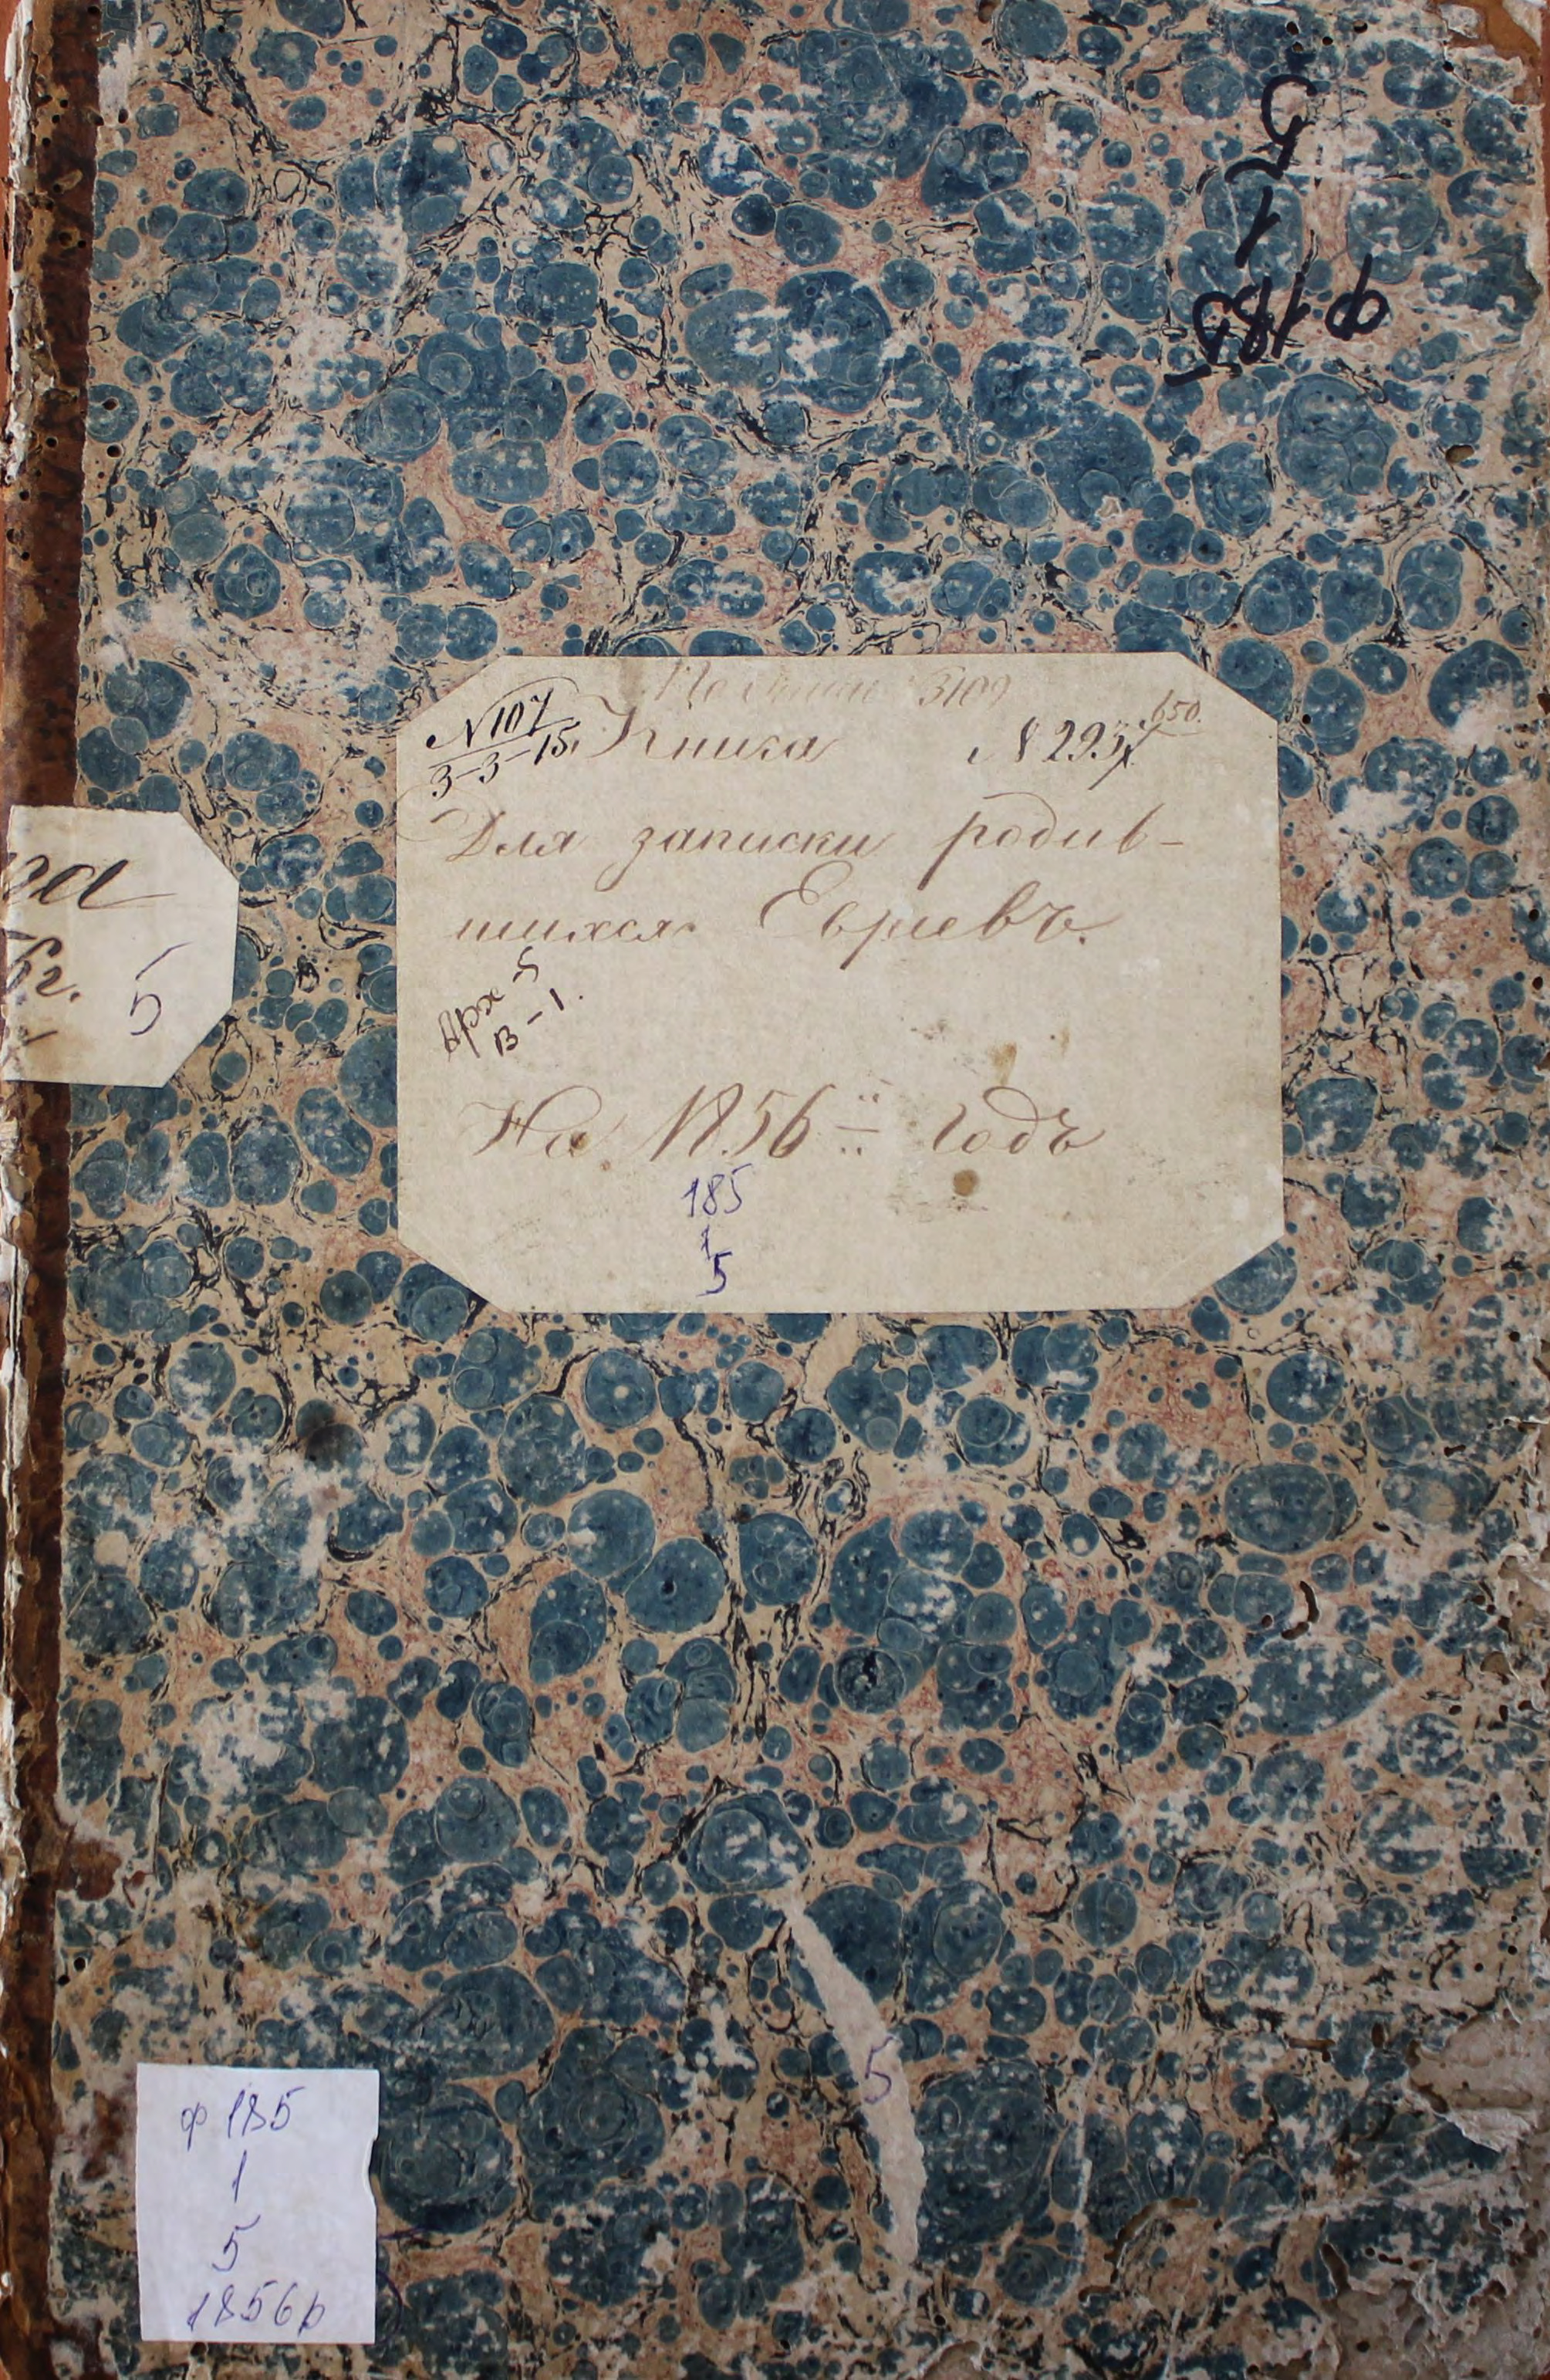 5
1
ф 185
3109
№ 107
3-3-15.
Книга
650.
Для записки родив-
шихся Евреевъ.
Арх-5
В-1.
На 1856-й годъ
185
1
5
га
6г.
5
5
ф 185
1
5
1856р